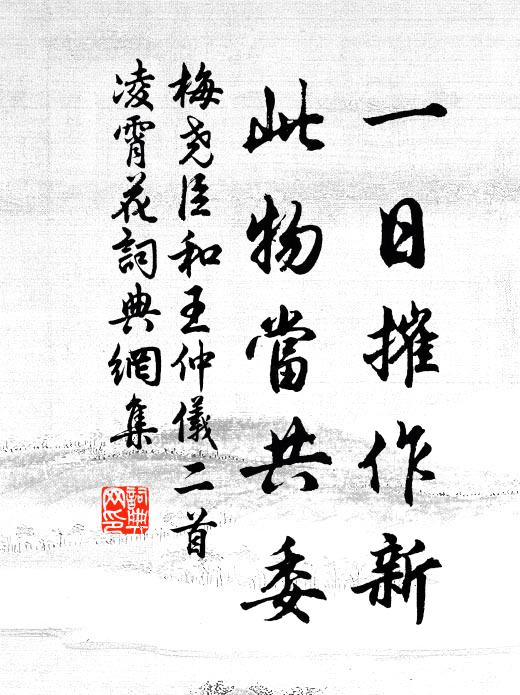 一日摧作新
此物當共委
梅尧臣和王仲儀二首
凌霄花詞典網集
詞典网印